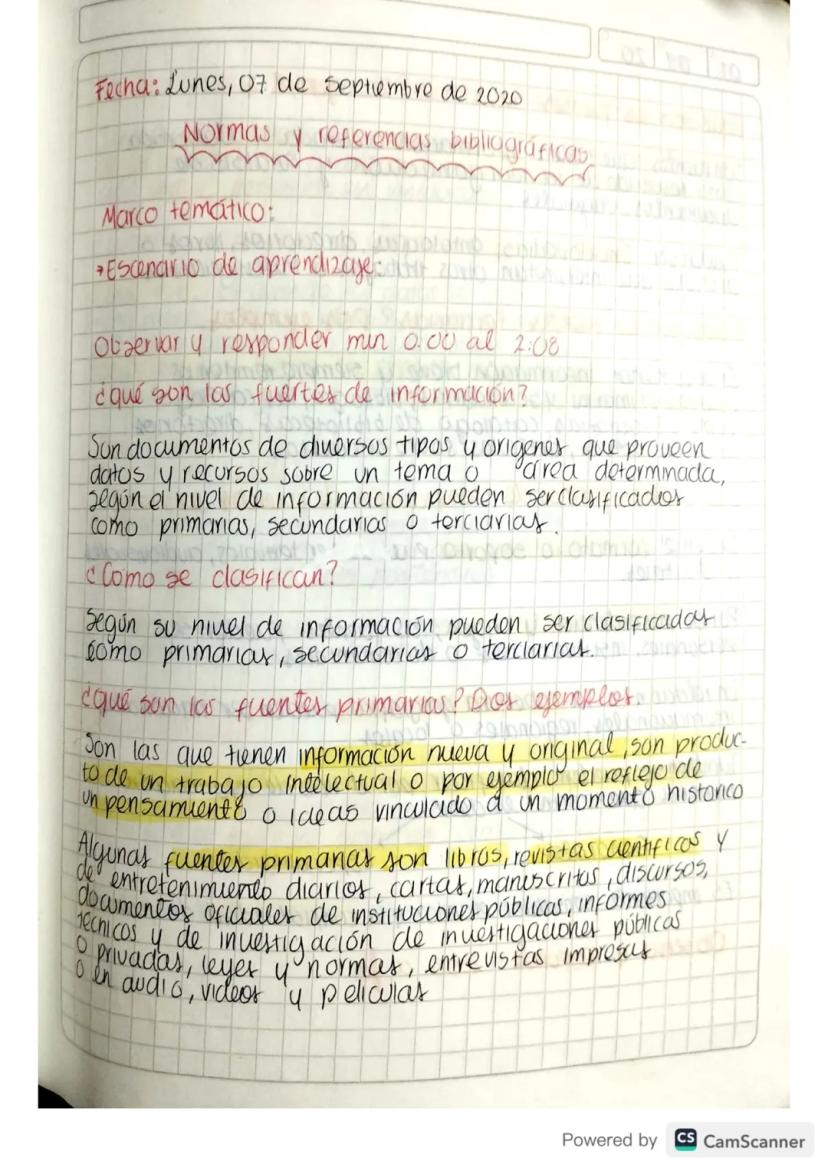 Fecha: Lunes, 07 de Septiembre de 2020
Normas y referencias bibliográficas
Marco temático:
→Escenario de aprendizaje:
Observar y responder min 0:00 al 2:08
¿qué son las fuertes de información?
Son documentos de diversos tipos y origenes que proveen
datos y recursos sobre un tema o área determinada,
según el nivel de información pueden ser clasificados
como primarias, secundarias o terciarias.
¿Como se clasifican?
Según su nivel de información pueden ser clasificadas
como primarias, secundarias o terciarias.
¿qué son las fuentes primarias? Dos ejemplos.
Son las que tienen información nueva y original, son produc-
to de un trabajo intelectual o por ejemplo el reflejo de
un pensamiento o ideas vinculado a un momento historico
Algunas fuentes primarias son libros, revistas científicas y
de entretenimiento diarios, cartas, manuscritos, discursos,
documentos oficiales de instituciones públicas, informes
técnicos y de investigación de investigaciones públicas
o privadas, leyes y normas, entrevistas impresas
o en audio, videos y peliculas
Powered by CS CamScanner